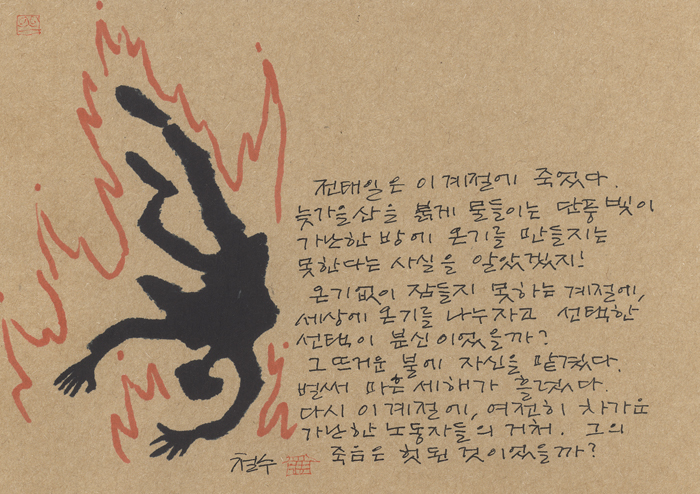 전태일은 이 계절에 죽었다.
늦가을 산을 붉게 물들이는 단풍빛이
가난한 방에 온기를 만들지는
못한다는 사실을 알았겠지!
온기없이 잠들지 못하는 계절에,
세상에 온기를 나누자고 선택한
선택이 분신이었을까?
그 뜨거운 불에 자신을 맡겼다.
벌써 마흔 세해가 흘렀다.
다시 이 계절에, 여전히 차가운
가난한 노동자들의 거처. 그의
죽음은 헛된 것이었을까?
철수